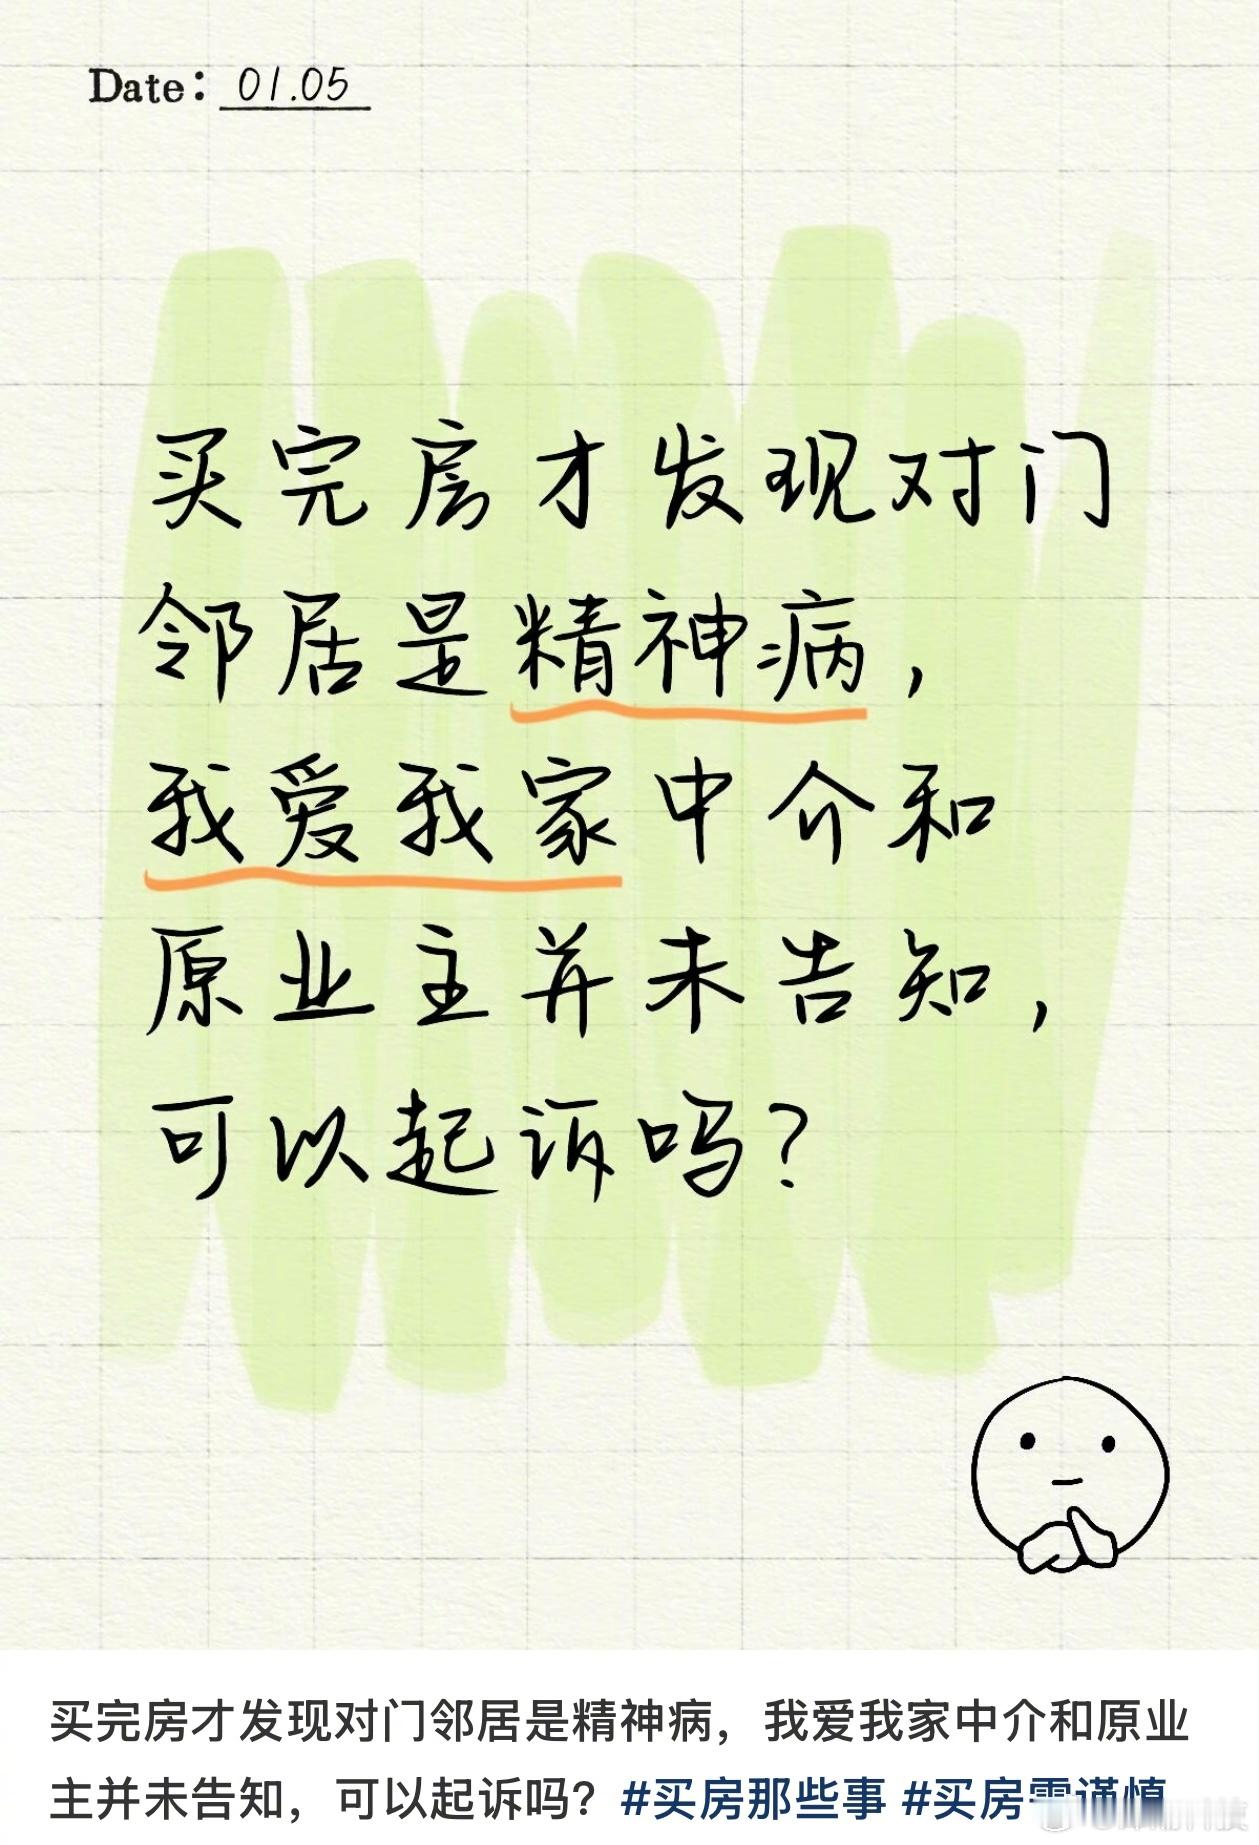 Date: 01.05
买完房才发现对门
邻居是精神病，
我爱我家中介和
原业主并未告知，
可以起诉吗？
买完房才发现对门邻居是精神病，我爱我家中介和原业
主并未告知，可以起诉吗？#买房那些事 #买房需谨慎